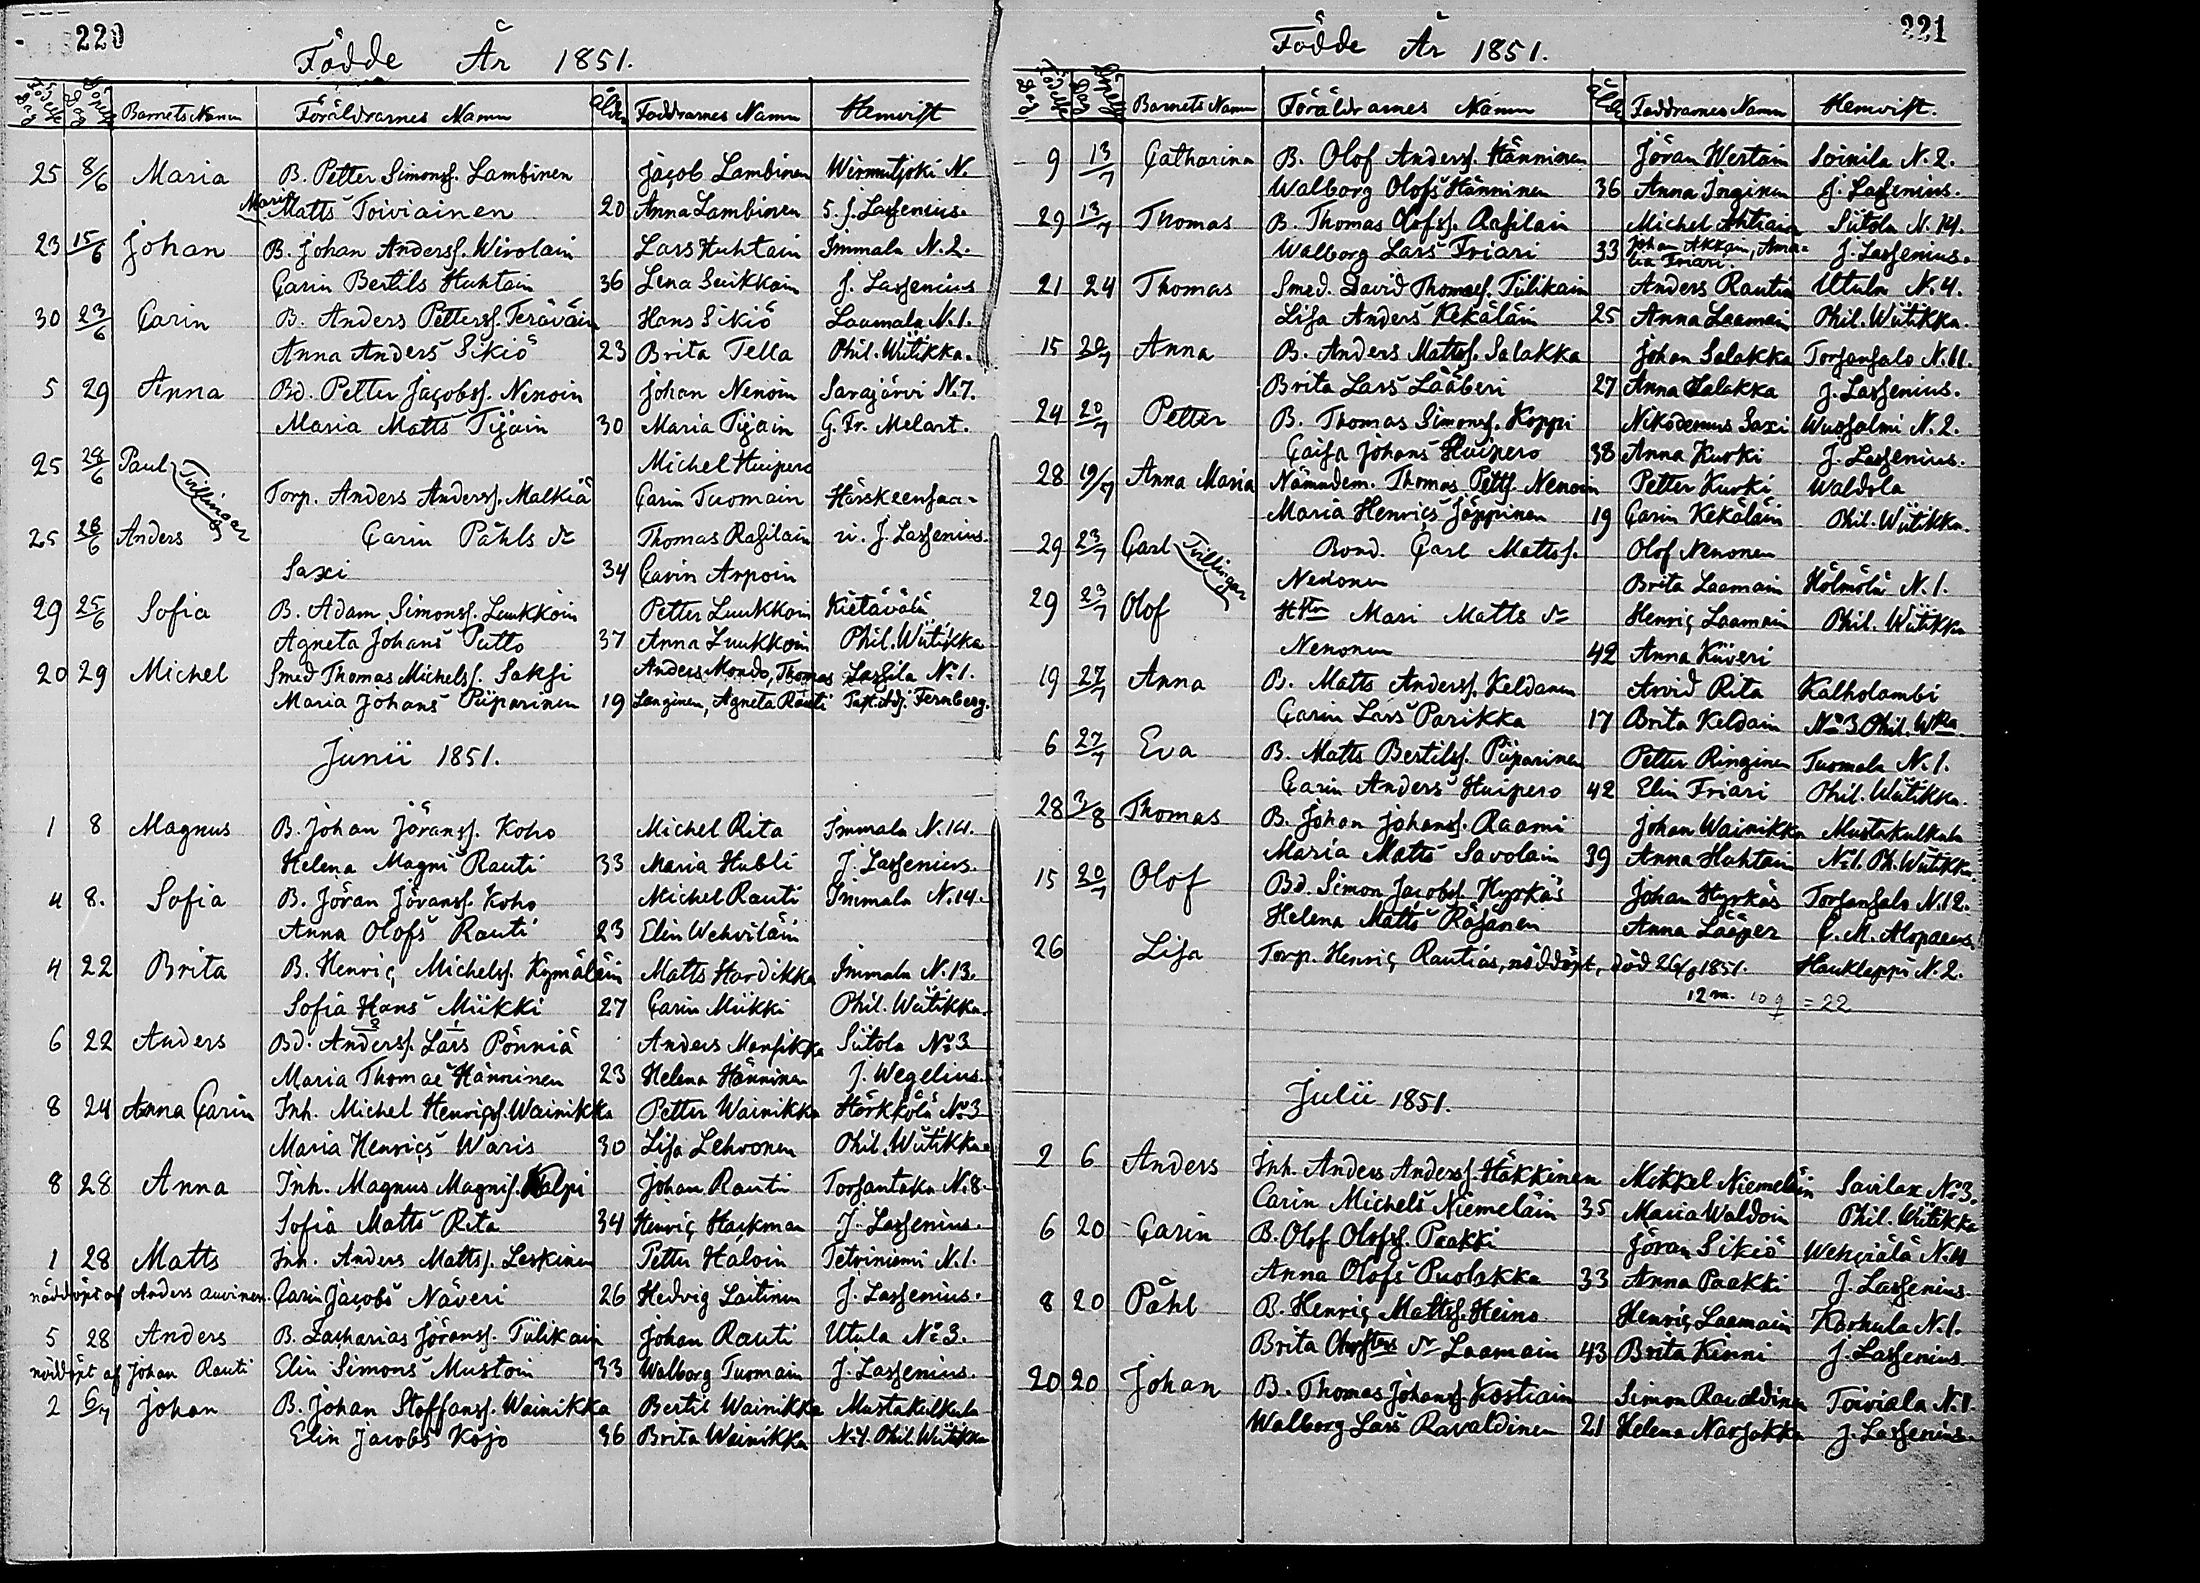 220
Födde År 1851.
Födelse Dag Döpelse Dag Barnets Namn Föräldrarnes Namn Åld. Faddrarnes Namn Hemvist
25 8/6 Maria B. Petter Simonsſ. Lambinen Jaçob Lambinen Wirmutjoki N.
Maria Matts Toiviainen 20 Anna Lambinen 5. J. Laſſenius.
23 15/6 Johan B. Johan Andersſ. Wirolain Lars Huhtain Immala N. 2.
Çarin Bertils Huhtain 36 Lena Suikkain J. Laſſenius
30 23/6 Çarin B. Anders Pettersſ. Teräväin Hans Sikiö Laumala N. 1.
Anna Anders Sikiö 23 Brita Tella Phil. Wiitikka.
5 29 Anna Bd. Petter Jaçobsſ. Nenoin Johan Nenoin Sarajärvi N. 7.
Maria Matts Tijäin 30 Maria Tijäin G. Fr. Melart.
25 28/6 Paul Tvillingar Michel Huipero
Torp. Anders Andersſ. Malkiä Çarin Tuomain Härskeensaa-
25 28/6 Anders Çarin Påhls dr Thomas Raſilain ri. J. Laſſenius.
Saxi 34 Çarin Arpoin
29 25/6 Sofia B. Adam Simonsſ. Luukkoin Petter Luukkoin Kietävälä
Agneta Johans Putto 37 Anna Luukkoin Phil. Wiitikka
20 29 Michel Smed Thomas Michelsſ. Sakſi Anders Mondo, Thomas Laſſila No 1.
Maria Johans Piiparinen 19 Langinen, Agneta Räuti Past. Adj. Fernberg.
Junii 1851.
1 8 Magnus B. Johan Jöransſ. Koho Michel Rita Immala N. 14.
Helena Magni Rauti 33 Maria Hubli J. Laſſenius.
4 8. Sofia B. Jöran Jöransſ. Koho Michel Rauti Immala N. 14.
Anna Olofs Rauti 23 Elin Wehviläin
4 22 Brita B. Henriç Michelsſ. Kymäläin Matts Hardikka Immala N. 13.
Sofia Hans Miikki 27 Çarin Miikki Phil. Wiitikka.
6 22 Anders Bd. Andersſ. Lars Pönniä Anders Manſikka Siitola No 3
Maria Thomæ Hänninen 23 Helena Hänninen J. Wegelius.
8 24 Anna Çarin Inh. Michel Henriçsſ. Wainikka Petter Wainikka Härkkölä No 3
Maria Henriçs Waris 30 Liſa Lehvonen Phil. Wiitikka.
8 28 Anna Inh. Magnus Magniſ. Kalpi Johan Rauti Torſantaka N. 8.
Sofia Matts Rita 34 Henriç Haikman J. Laſſenius.
1 28 Matts Inh. Anders Mattsſ. Leskinen Petter Haloin Tetriniemi N. 1.
nöddöpt af Anders Auvinen. Çarin Jaçobs Näveri 26 Hedvig Laitinen J. Laſſenius.
5 28 Anders B. Zacharias Jöransſ. Tiilikain Johan Rauti Utula No 3.
nöddöpt af Johan Rauti Elin Simons Mustoin 33 Walborg Tuomain J. Laſſenius.
2 6/7 Johan B. Johan Staffansſ. Wainikka Bertil Wainikka Mustakulkula
Elin Jacobs Kojo 36 Brita Wainikka No 1. Phil. Wiitikka
221
Födde År 1851.
Födelse Dag Döpelse Dag Barnets Namn Föräldrarnes Namn Åld. Faddrarnes Namn Hemvist.
9 13/7 Çatharina B. Olof Andersſ. Hänninen Jöran Wertain Soinila N. 2.
Walborg Olofs Hänninen 36 Anna Inginen J. Laſſenius.
29 13/7 Thomas B. Thomas Olofsſ. Raſilain Michel Ahtiain Siitola N. 14.
Walborg Lars Friari 33 Johan Akkain, Amalia Friari. J. Laſſenius.
21 24 Thomas Smed. David Thomæſ. Tiilikain Anders Rautia Utula N. 4.
Liſa Anders Kekäläin 25 Anna Laamain Phil. Wiitikka.
15 20/7 Anna B. Anders Mattsſ. Salakka Johan Salakka Torſanſalo N. 11.
Brita Lars Lääberi 27 Anna Salakka J. Laſſenius.
24 20/7 Petter B. Thomas Simonsſ. Koppi Nikodemus Saxi Wuoſalmi N. 2.
Caiſa Johans Huipero 38 Anna Kurki J. Laſſenius.
28 19/7 Anna Maria Nämndem. Thomas Pettsſ. Nenoin Petter Kurki Waldola
Maria Henriçs Jäppinen 19 Çarin Kekäläin Phil. Wiitikka.
29 23/7 Çarl Tvillingar Bond. Çarl Mattsſ. Olof Nenonen
Nenonen Brita Laamain Hölmölä N. 1.
29 23/7 Olof Hstru Mari Matts dr Henriç Laamain Phil. Wiitikka
Nenonen 42 Anna Kiiveri
19 27/7 Anna B. Matts Andersſ. Keldanen Arvid Rita Kalholambi
Çarin Lars Parikka 17 Brita Keldain No 3 Phil. Wka.
6 27/7 Eva B. Matts Bertilsſ. Piiparinen Petter Ringinen Tuomala N. 1.
Çarin Anders Huipero 42 Elin Friari Phil. Wiitikka.
28 3/8 Thomas B. Johan Johansſ. Raami Johan Wainikka Mustakulkula
Maria Matts Savolain 39 Anna Huhtain No 1. Ph. Wiitikka.
15 20/7 Olof Bd. Simon Jaçobsſ. Hyrkäs Johan Hyrkäs Torſanſalo N. 12.
Helena Matts Räſänen Anna Lääper C. M. Alopaeus.
26 Liſa Torp. Henriç Rautias, nöddöpt, död 26/6 1851. Hauklappi N. 2.
12 m. 10 q = 22
Julii 1851.
2 6 Anders Inh. Anders Andersſ. Häkkinen Mikkel Niemeläin Savilax No 3.
Carin Michels Niemeläin 35 Maria Waldoin Phil. Wiitikka
6 20 Çarin B. Olof Olofsſ. Paakki Jöran Sikiö Wehçiälä N. 4
Anna Olofs Puolakka 33 Anna Paakki J. Laſſenius.
8 20 Påhl B. Henriç Mattsſ. Heino Henriç Laamain Karhula N. 1.
Brita Chrſters dr Laamain 43 Brita Kinni J. Laſſenius.
20 20 Johan B. Thomas Johansſ. Kostiain Simon Ravaldinen Toiviala N. 1.
Walborg Lars Ravaldinen 21 Helena Narſakka J. Laſſenius.